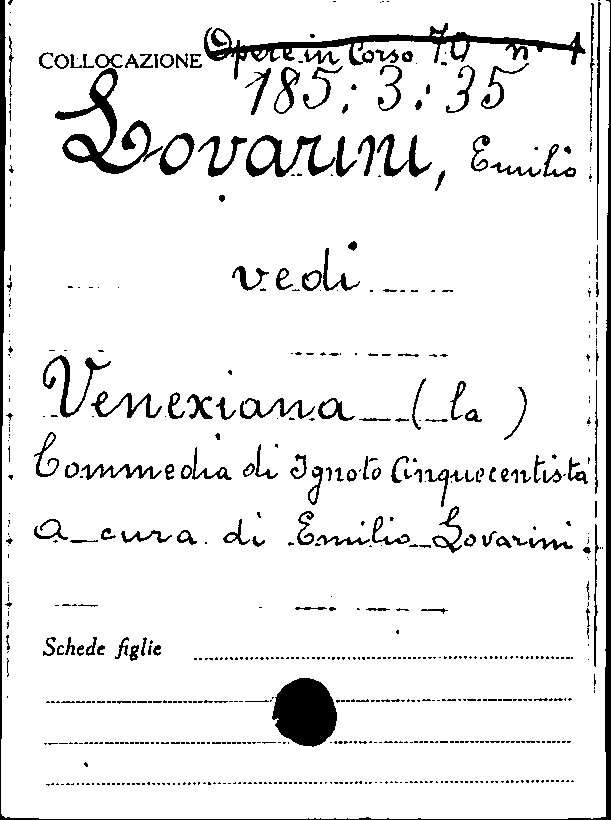 COLLOCAZIONE Opere in Corso 70 n° 1
185:3:35
Lovarini, Emilio
vedi
Venexiana (la)
Commedia di Ignoto Cinquecentista
a cura di Emilio Lovarini.
Schede figlie